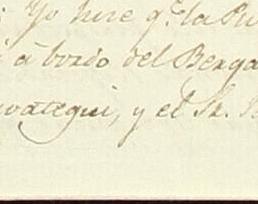 Yo hice q.e la Pu
à bordo del Berga
vategui, y el Sr.